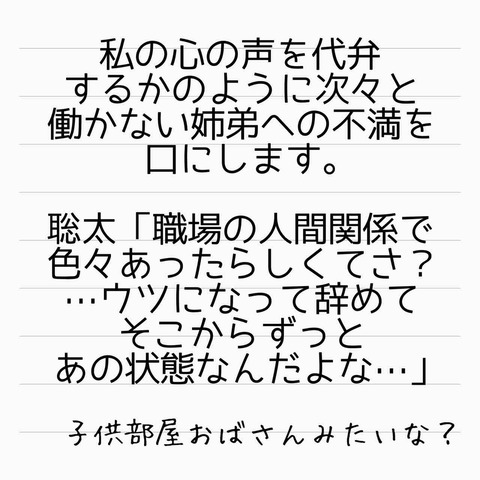 私の心の声を代弁
するかのように次々と
働かない姉弟への不満を
口にします。
聡太「職場の人間関係で
色々あったらしくてさ？
…ウツになって辞めて
そこからずっと
あの状態なんだよな…」
子供部屋おばさんみたいな？